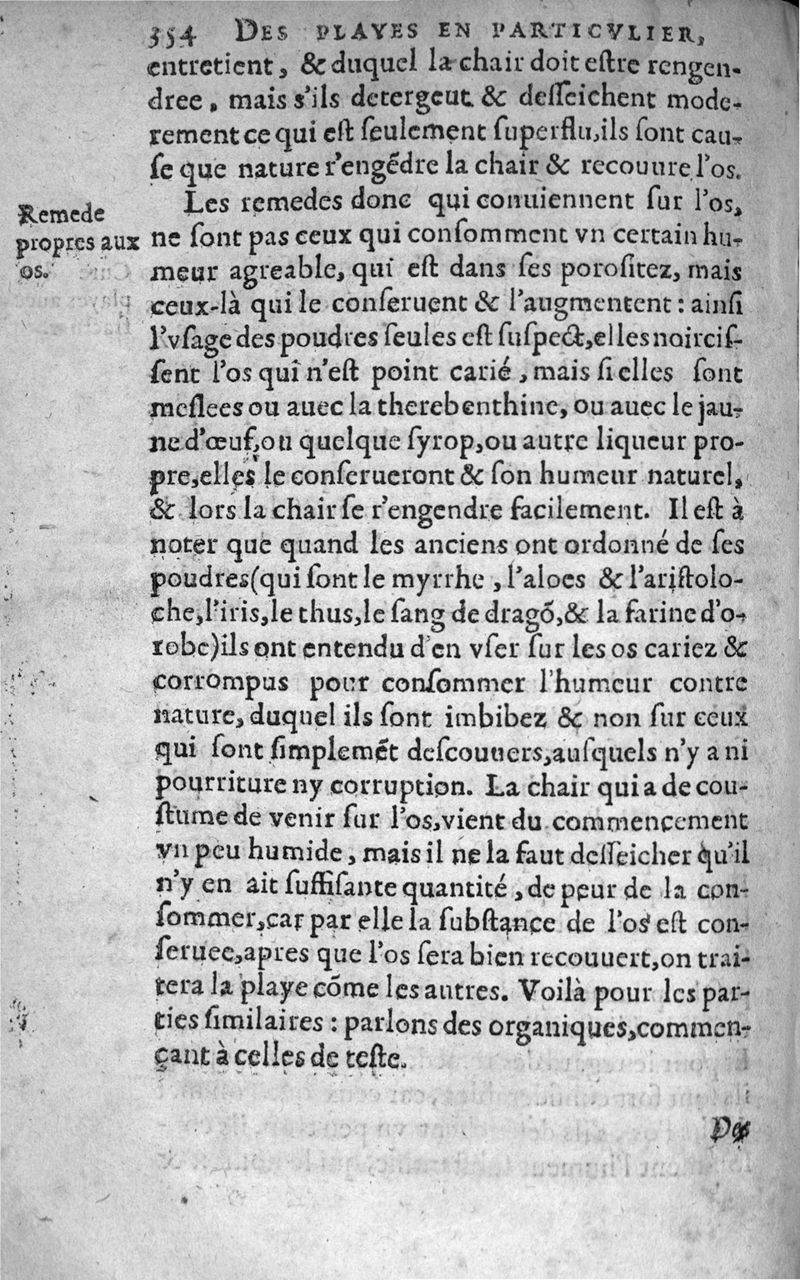 354 DES PLAYES EN PARTICVLIER,
entretient, & duquel la chair doit eſtre rengen-
dree, mais s'ils detergeut & deſſeichent mode-
rement ce qui eſt ſeulement ſuperflu, ils ſont cau-
ſe que nature r'engẽdre la chair & recouure l'os.
Les remedes donc qui conuiennent ſur l'os,
Remede
propres aux
os.
ne ſont pas ceux qui conſomment vn certain hu-
meur agreable, qui eſt dans ſes poroſitez, mais
ceux-là qui le conſeruent & l'augmentent : ainſi
l'vſage des poudres ſeules eſt ſuſpect, elles noirciſ-
ſent l'os qui n'eſt point carié, mais ſi elles ſont
meſlees ou auec la therebenthine, ou auec le jau-
ne d'œuf, ou quelque ſyrop, ou autre liqueur pro-
pre, elles le conſerueront & ſon humeur naturel,
& lors la chair ſe r'engendre facilement. Il eſt à
noter que quand les anciens ont ordonné de ſes
poudres (qui ſont le myrrhe, l'aloes & l'ariſtolo-
che, l'iris, le thus, le ſang de dragõ, & la farine d'o-
robe) ils ont entendu d'en vſer ſur les os cariez &
corrompus pour conſommer l'humeur contre
nature, duquel ils ſont imbibez & non ſur ceux
qui ſont ſimplemẽt deſcouuers, auſquels n'y a ni
pourriture ny corruption. La chair qui a de cou-
ſtume de venir ſur l'os, vient du commencement
vn peu humide, mais il ne la faut deſſeicher qu'il
n'y en ait ſuffiſante quantité, de peur de la con-
ſommer, car par elle la ſubſtance de l'os eſt con-
ſeruee, apres que l'os ſera bien recouuert, on trai-
tera la playe cõme les autres. Voilà pour les par-
ties ſimilaires : parlons des organiques, commen-
çant à celles de teſte.
Des